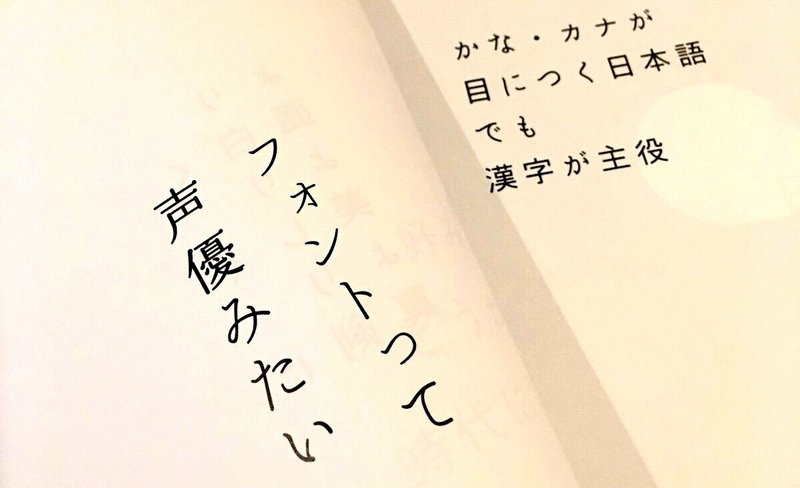 かな・カナが
目につく日本語
でも
漢字が主役
フォントって
声優みたい